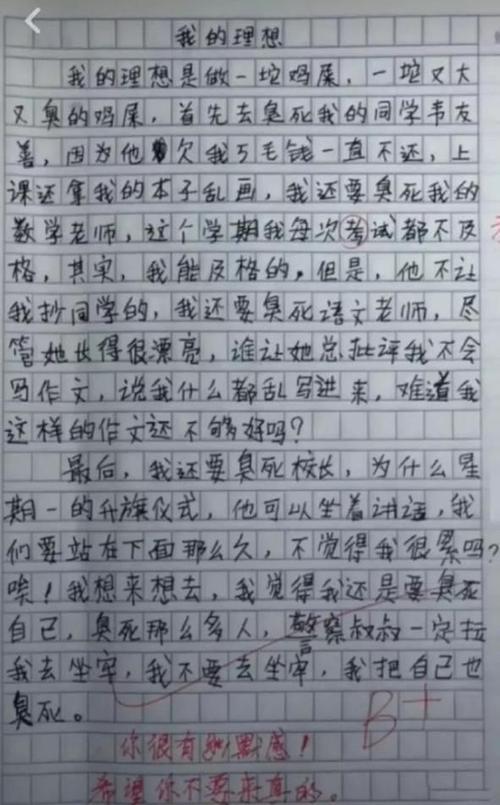 我的理想
我的理想是做一坨鸡屎,一坨又大
又臭的鸡屎,首先去臭死我的同学韦友
善,因为他欠我5毛钱一直不还,上
课还拿我的本子乱画,我还要臭死我的
数学老师,这个学期我每次考试都不及
格,其实,我能及格的,但是,他不让
我抄同学的,我还要臭死语文老师,尽
管她长得很漂亮,谁让她总批评我不会
写作文,说我什么都乱写进来,难道我
这样的作文还不够好吗?
最后,我还要臭死校长,为什么星
期一的升旗仪式,他可以坐着讲话,我
们要站在下面那么久,不觉得我很累吗?
唉!我想来想去,我觉得我还是要臭死
自己,臭死那么多人,警察叔叔一定拉
我去坐牢,我不要去坐牢,我把自己也
臭死。
B+
你很有幽默感!
希望你不要来真的。